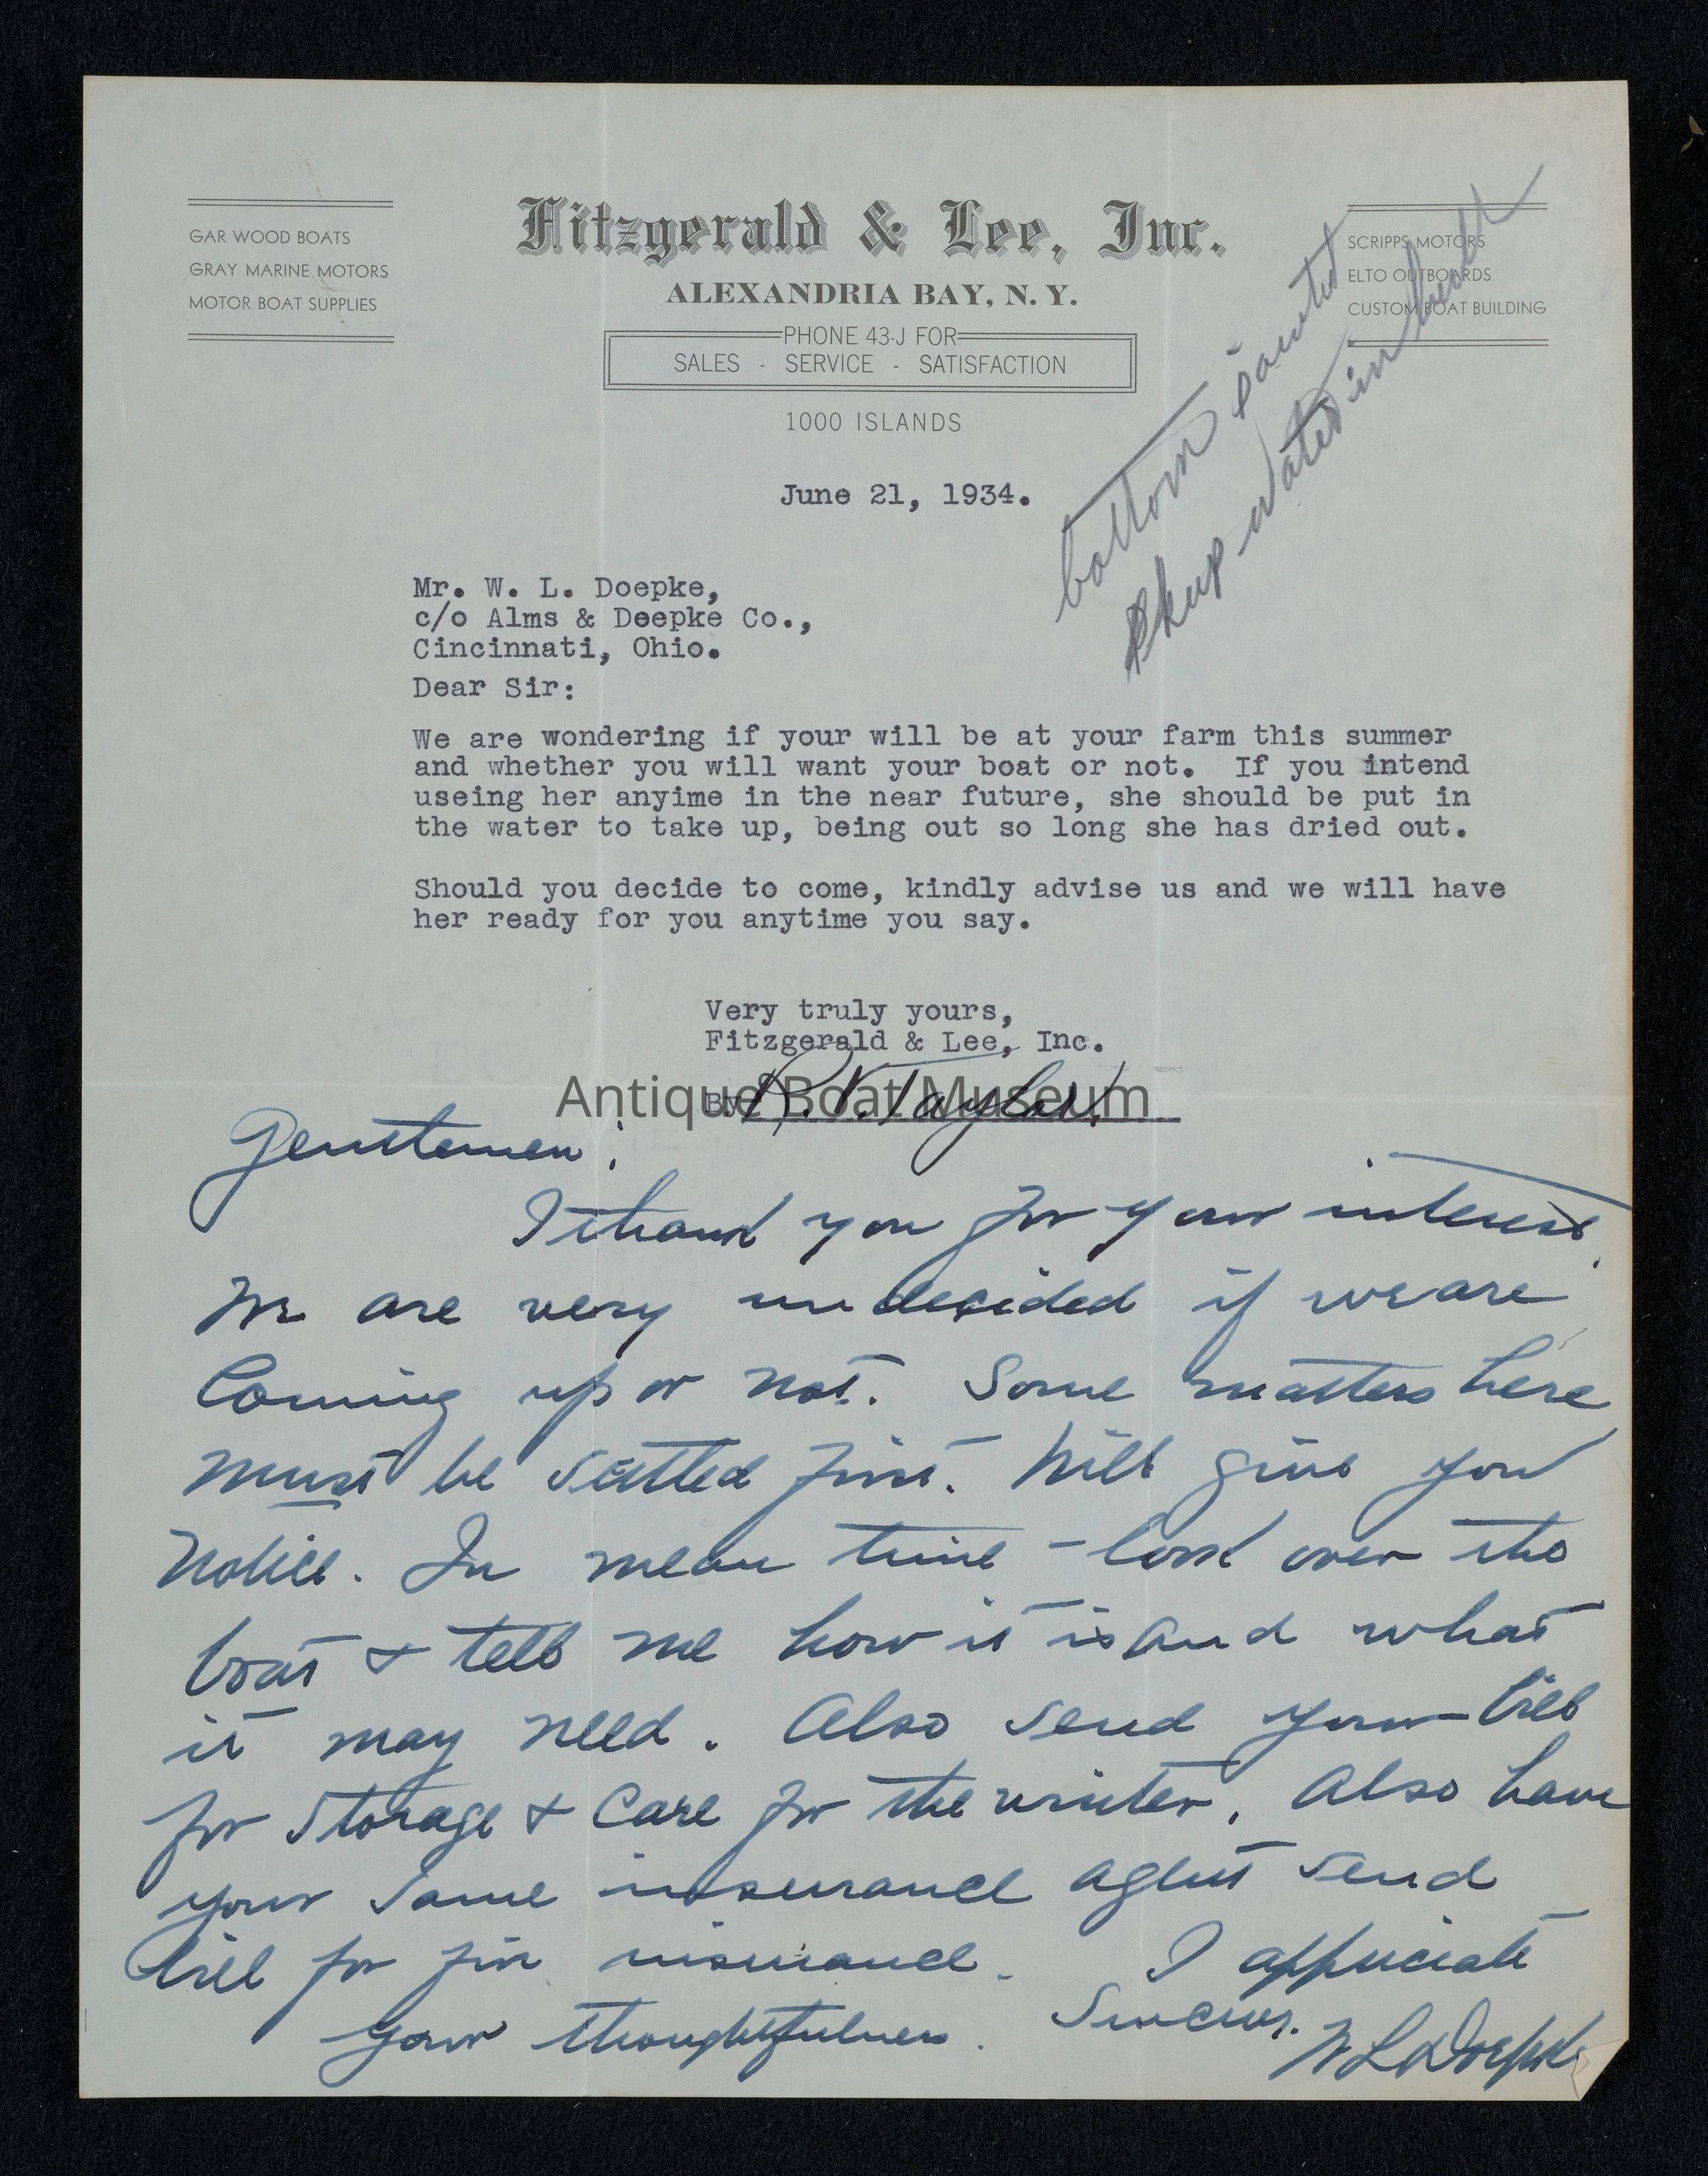 GAR WOOD BOATS
GRAY MARINE MOTORS
MOTOR BOAT SUPPLIES
Fitzgerald & Lee, Inc.
ALEXANDRIA BAY, N. Y.
PHONE 43-J FOR
SALES - SERVICE - SATISFACTION
1000 ISLANDS
SCRIPPS MOTORS
ELTO OUTBOARDS
CUSTOM BOAT BUILDING
bottom painted
water in
June 21, 1934.
Mr. W. L. Doepke,
c/o Alms & Deepke Co.,
Cincinnati, Ohio.
Dear Sir:
We are wondering if your will be at your farm this summer
and whether you will want your boat or not. If you intend
useing her anyime in the near future, she should be put in
the water to take up, being out so long she has dried out.
Should you decide to come, kindly advise us and we will have
her ready for you anytime you say.
Very truly yours,
Fitzgerald & Lee, Inc.
By R. V. Taylor
Antique Boat Museum
Gentlemen:
I thank you for your interest.
We are very undecided if we are
Coming up or not. Some matters here
must be settled first. Will give you
notice. In mean time - look over the
boat & tell me how it is and what
it may need. Also send your bill
for Storage & Care for the winter. Also have
your same insurance agent send
bill for fire insurance. I appreciate
your thoughtfulness. Sincerely.
W L Doepke